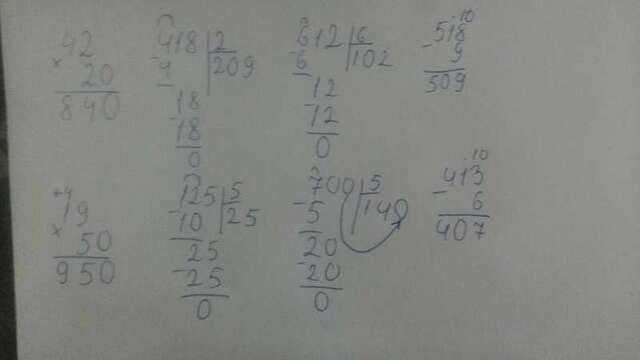 42
× 20
840
418 | 2
- 4 | 209
18
- 18
0
612 | 6
- 6 | 102
12
- 12
0
10
518
- 9
509
+4
19
× 50
950
125 | 5
- 10 | 25
25
- 25
0
700 | 5
- 5 | 140
20
- 20
0
10
413
- 6
407